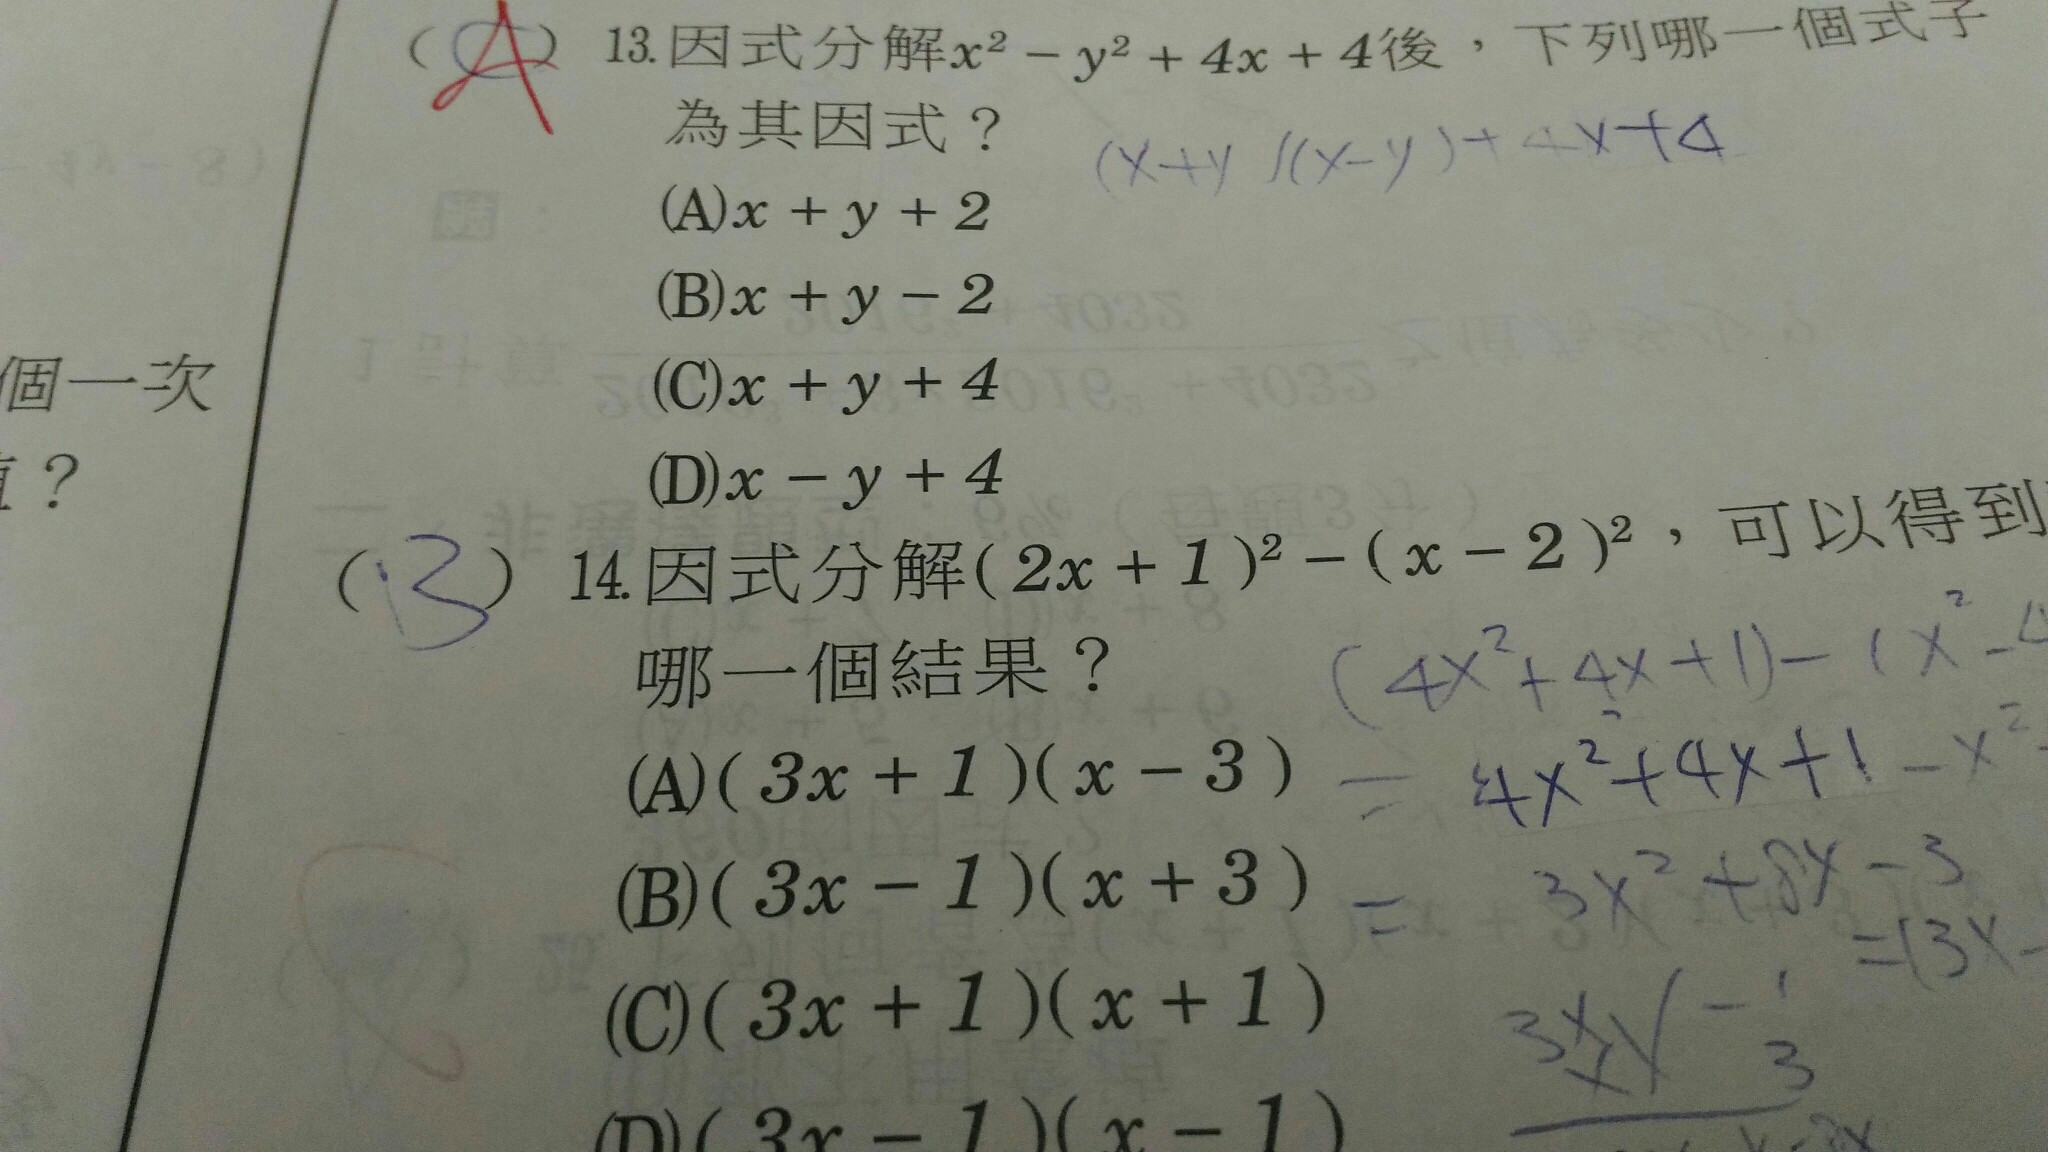 (A) 13.因式分解x² − y² + 4x + 4後，下列哪一個式子
為其因式？
(x+y)(x-y)+4x+4
(A)x + y + 2
(B)x + y − 2
(C)x + y + 4
(D)x − y + 4
個一次
？
(B) 14.因式分解( 2x + 1 )² − ( x − 2 )²，可以得到
哪一個結果？
(4x²+4x+1)-(x²-4
(A)( 3x + 1 )( x − 3 )
= 4x²+4x+1-x²
(B)( 3x − 1 )( x + 3 )
= 3x²+8x-3
=(3x-
(C)( 3x + 1 )( x + 1 )
3x -1
x 3
(D)( 3x − 1 )( x − 1 )